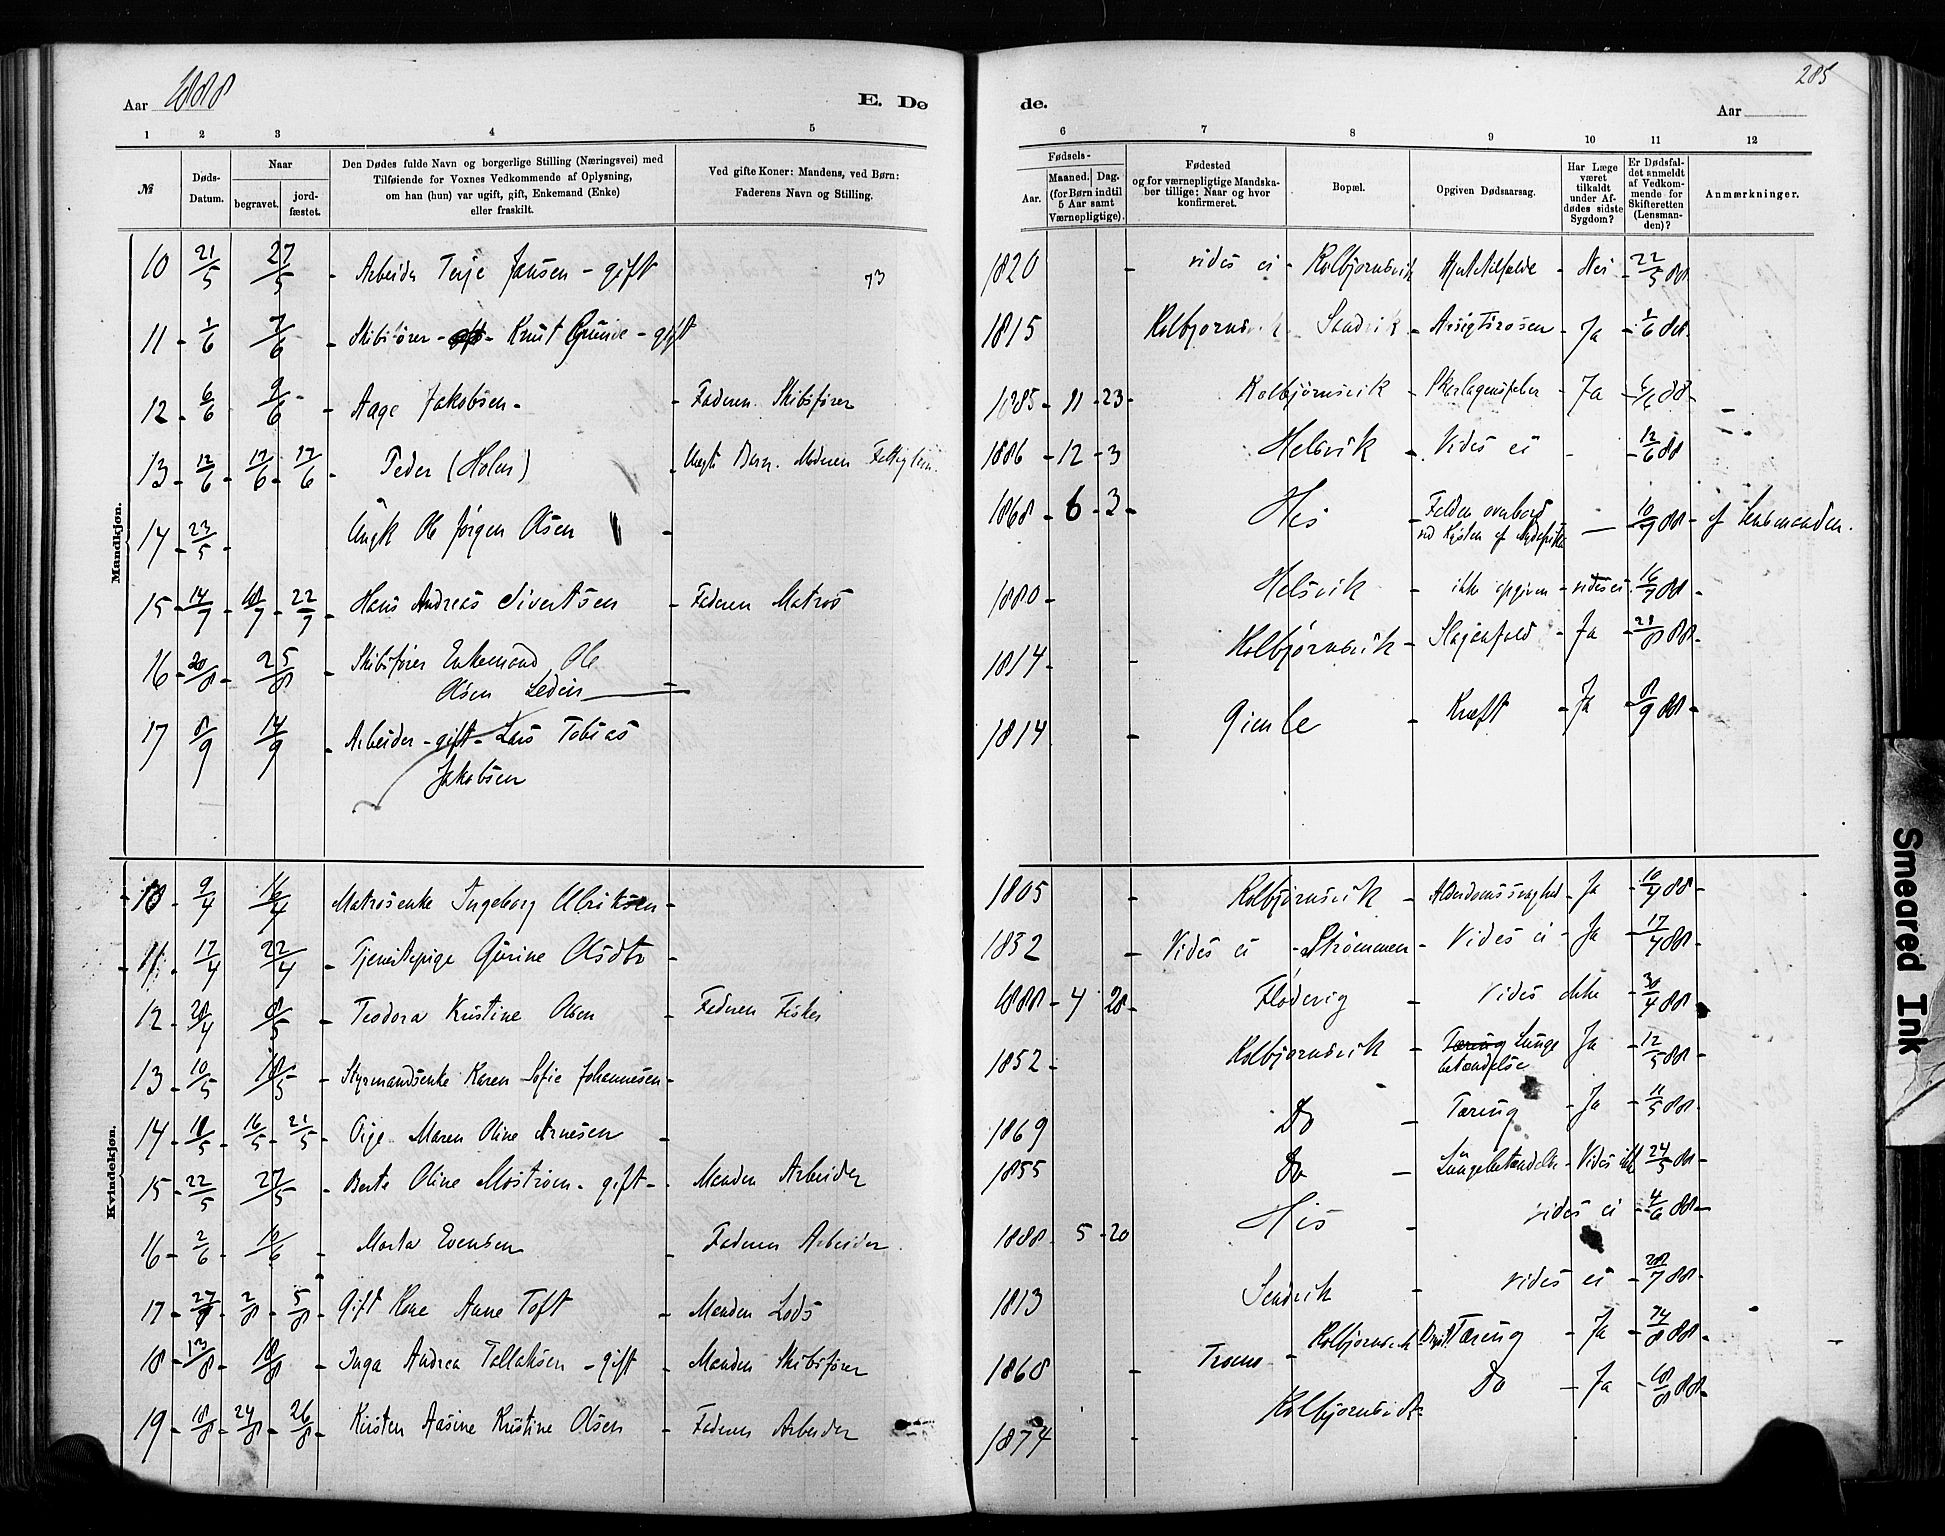 285
Aar 1888
E. Dø
de.
Aar
1 2 3 4 5 6 7 8 9 10 11 12
№
Døds-Datum.
Naar
begravet.
jordfæstet.
Den Dødes fulde Navn og borgerlige Stilling (Næringsvei) med
Tilføiende for Voxnes Vedkommende af Oplysning,
om han (hun) var ugift, gift, Enkemand (Enke)
eller fraskilt.
Ved gifte Koner: Mandens, ved Børn:
Faderens Navn og Stilling.
Fødsels-
Aar.
Maaned. Dag.
(for Børn indtil
5 Aar samt
Værnepligtige).
Fødested
og for værnepligtige Mandska-
ber tillige: Naar og hvor
konfirmeret.
Bopæl.
Opgiven Dødsaarsag.
Har Læge
været
tilkaldt
under Af-
dødes sidste
Sygdom?
Er Dødsfal-
det anmeldt
af Vedkom-
mende for
Skifteretten
(Lensman-
den)?
Anmærkninger.
Mandkjøn.
10 21/5 27/5 Arbeider Terje Jansen - gift 73 1820 - vides ei - Kolbjørnsvik Hjertetilfælde - Nei - 22/5 88
11 - 2/6 7/6 - Skibsfører - Knut Grunde - gift 1815 Kolbjørnsvik Sandvik - - Ja - 88
12 - 6/6 9/6 - Aage Jakobsen - - Faderen Skibsfører 1885 - 11 - 23 - Kolbjørnsvik - Skarlagensfeber - Ja - 6/6 88 -
13 - 12/6 - 17/6 - 17/6 - Peder (Holm) - Uægte Barn. Moderen 1886 - 12 - 3 Helsvik - Vides ei - - 12/6 88
14 - 23/5 - Ungk Ole Jørgen Olsen - 1868 - 6 - 3 - His - Falden overbord
ved Kysten af - 10/7 88 - af Lensmanden.
15 - 14/7 - 18/7 - 22/7 - Hans Andreas Sivertsen - Faderen Matros 1880 - Helsvik - ikke opgiven - vides ei - 16/7 88 -
16 - 20/8 - 25/8 - Skibsfører Enkemand Ole
Olsen Ledin - 1814 - Kolbjørnsvik - Slaganfald - Ja - 88 -
17 8/9 14/9 - Arbeider - gift - Lars Tobias
Jakobsen 1814 - Gimle - Kræft - Ja - 8/9 88 -
Kvindekjøn.
10 - 9/4 16/4 Matrosenke Ingeborg Ulriksen - 1805 - Kolbjørnsvik - Alderdomssvaghed - Ja - 10/4 88 -
11 - 17/4 22/4 - Tjenestepige Gurine Olsdtr - 1832 - Vides ei - Strømmen - Vides ei - Ja - 17/4 88 -
12 - 28/4 8/5 - Teodora Kristine Olsen - Faderen Fisker 1888 - 4 - 28 - Flødevig - Vides ikke - 30/4 88 -
13 - 10/5 18/5 - Styrmandsenke Karen Sofie Johannesen - 1852 - Kolbjørnsvik - Tæring Lunge
betændelse Ja - 12/5 88 -
14 - 10/5 - 16/5 - 21/5 - Pige Maren Oline Arnesen - 1869 Do - Tæring - Ja - 11/5 88 -
15 - 22/5 27/5 - Berte Oline Mostrøm - gift - - Manden Arbeider 1855 Do - Lungebetændelse - Vides ikke 24/5 88 -
16 - 2/6 - 10/6 - Marta Evensen - Faderen Arbeider. 1888 - 5 - 20 His - vides ei - 4/6 88 -
17 - 27/7 - 2/8 - 5/8 - Gift Kone Anne Toft - Manden Lods 1813 Sandvik - vides ei - 28/7 88 -
18 - 13/8 - 18/8 - Inga Andrea Tallaksen - gift - Manden Skibsfører 1860 - Tromø - Kolbjørnsvik Tæring - Ja - 88 -
19 - 18/8 - 24/8 - 26/8 - Kirsten Aasine Kristine Olsen - Faderen Arbeider 1874 Kolbjørnsvik - Do - Ja - 18/8 88 -
Smeared Ink